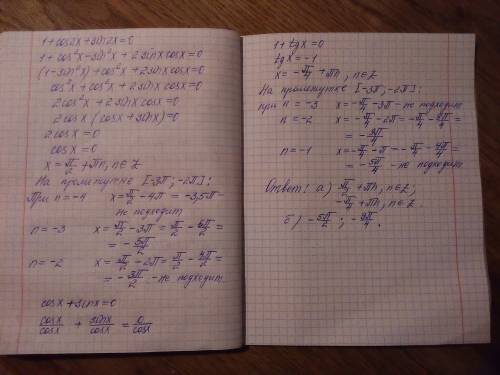 1 + cos2x + sin2x = 0
1 + cos²x - sin²x + 2sinx cosx = 0
(1 - sin²x) + cos²x + 2sinx cosx = 0
cos²x + cos²x + 2sinx cosx = 0
2cos²x + 2sinx cosx = 0
2cosx (cosx + sinx) = 0
2cosx = 0
cosx = 0
x = π/2 + πn, n∈Z
На промежутке [-3π; -2π]:
При n = -4 x = π/2 - 4π = -3,5π -
не подходит
n = -3 x = π/2 - 3π = π/2 - 6π/2 =
= -5π/2
n = -2 x = π/2 - 2π = π/2 - 4π/2 =
= -3π/2 - не подходит.
cosx + sinx = 0
cosx/cosx + sinx/cosx = 0/cosx
1 + tgx = 0
tgx = -1
x = -π/4 + πn, n∈Z
На промежутке [-3π; -2π]:
при n = -3 x = -π/4 - 3π - не подходит
n = -2 x = -π/4 - 2π = -π/4 - 8π/4 =
= -9π/4
n = -1 x = -π/4 - π = -π/4 - 4π/4 =
= -5π/4 - не подходит
Ответ: а) π/2 + πn, n∈Z;
-π/4 + πn, n∈Z.
б) -5π/2; -9π/4.